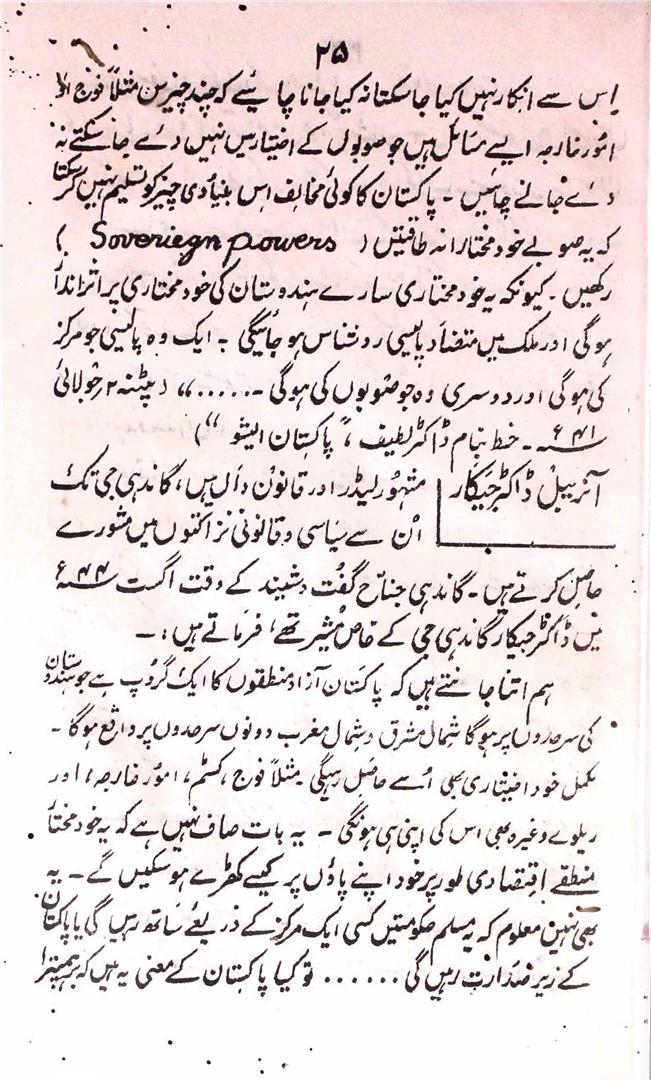 ۲۵
اِس سے انکار نہیں کیا جا سکتا نہ کیا جانا چاہیئے کہ چند چیزیں مثلاً فوج اور
امُور خارجہ ایسے مسَائل ہیں جو صوبوں کے اختیار میں نہیں دئے جا سکتے نہ
دئے جانے چاہئیں ۔ پاکستان کا کوئی مخالف اِس بنیادی چیز کو تسلیم نہیں کر سکتا
کہ یہ صوبے خود مختارانہ طاقتیں ( Soveriegn powers )
رکھیں ۔ کیونکہ یہ خود مختاری سارے ہندوستان کی خود مختاری پر اثر انداز
ہوگی اور ملک میں متضاد پالیسی روشناس ہو جائیگی ۔ ایک وہ پالیسی جو مرکز
کی ہوگی اور دوسری وہ جو صُوبوں کی ہوگی ۔ ..... ،، ( پٹنہ ۲ر جولائی
۴۱ء ۔ خط بنام ڈاکٹر لطیف ،، ” پاکستان ایشو “ )
آنریبل ڈاکٹر جیکار مشہُور لیڈر اور قانوُن دَاں ہیں ، گاندھی جی تک
اُن سے سیَاسی و قانونی نزاکتوں میں مشورے
حاصِل کرتے ہیں ۔ گاندھی جناح گفُت و شنید کے وقت اگست ۴۴ء
میں ڈاکٹر جیکار گاندھی جی کے خاص مُشیر تھے ، فرمَاتے ہیں : ۔
ہم اتنا جانتے ہیں کہ پاکستان آزاد منطقوں کا ایک گروپ ہے جو ہندوستان
کی سرحدوں پر ہوگا شمال مشرق و شمال مغرب دونوں سرحدوں پر واقع ہوگا ۔
مکمل خود اختیاری بھی اُسے حاصَل رہیگی مثلاً فوج ، کسٹم ، امُور خارجہ ، اور
ریلوے وغیرہ بھی اس کی اپنی ہی ہونگی ۔ یہ بات صاف نہیں ہے کہ یہ خود مختار
منطقے اِقتصادی طور پر خود اپنے پاؤں پر کیسے کھڑے ہو سکیں گے ۔ یہ
بھی نہیں معلوم کہ یہ مسلم حکومتیں کسی ایک مرکز کے ذریعے سَاتھ رہیں گی یا پاکستان
کے زیر صَدارت رہیں گی ...... تو کیا پاکستان کے معنی یہ ہیں کہ